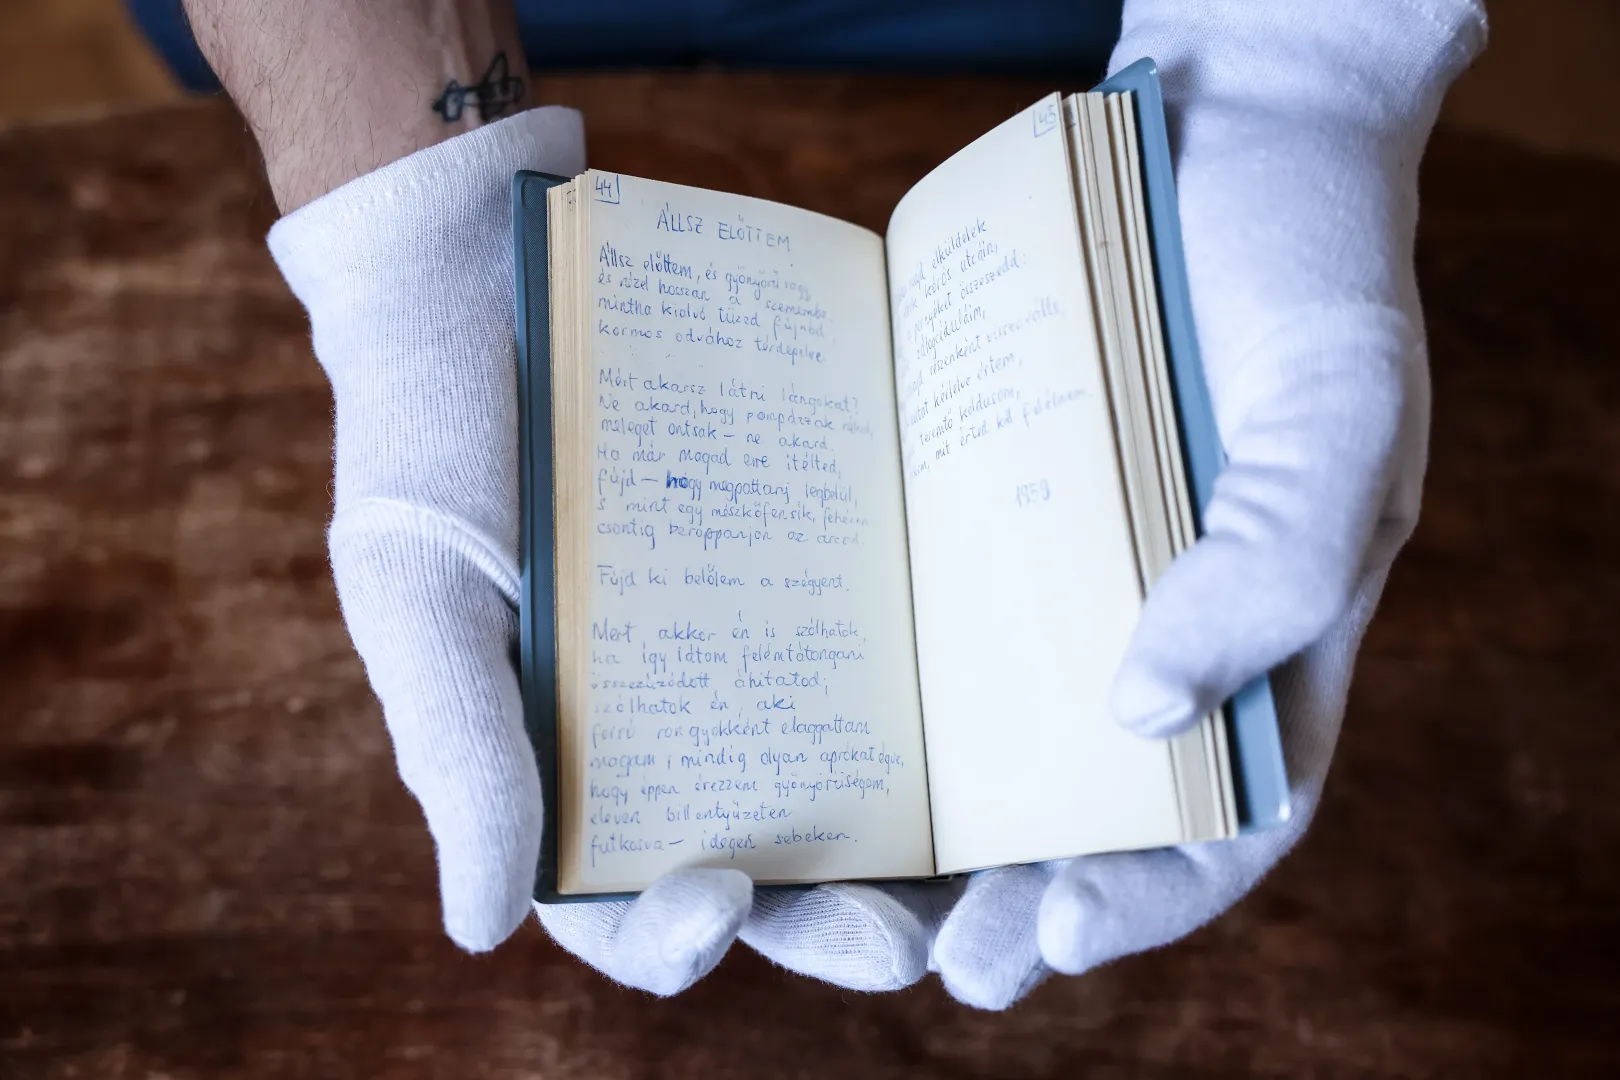 44
ÁLLSZ ELŐTTEM
Állsz előttem, és gyönyörű vagy
és nézel hosszan a szemembe
mintha kialvó tüzed fújnád
kormos odvához térdepelve.
Mért akarsz látni lángokat?
Ne akard, hogy pompázzak néked,
meleget ontsak – ne akard.
Ha már magad erre ítélted,
fújd – hogy megpattanj legbelül,
s mint egy mészkőfensík, fehéren
csontig beroppanjon az arcod.
Fújd ki belőlem a szégyent.
Mert akkor én is szólhatok,
ha így látom felémtátongani
összezúzódott áhitatod;
szólhatok én, aki
forró rongyokként elaggattam
magam, mindig olyan aprókat égve,
hogy éppen érezzem gyönyörűségem,
eleven billentyűzeten
futkosva – idegen sebeken.
45
majd elküldelek
körös utcáin,
a pernyéket összeszedd:
részenként visszaválts,
kérlelve értem,
teremtő koldusom,
mit érted kell félelnem.
1959